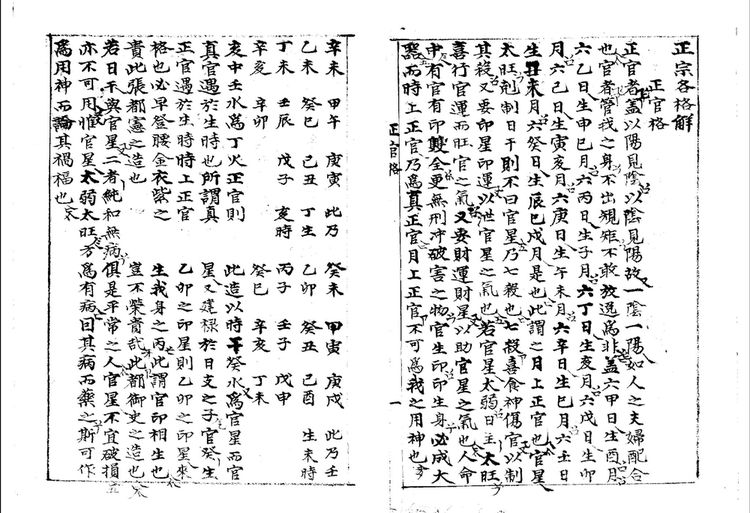 正宗各格解
正官格
正官者蓋以陽見陰以陰見陽故一陰一陽如人之夫婦配合
也官者管我之身不出規矩不敢放逸爲非蓋六甲日生酉月
六乙日生申巳月六丙日生子月六丁日生亥月六戊日生卯
月六己日生寅亥月六庚日生午未月六辛日生巳月六壬日
生丑未月六癸日生辰巳戌月是也此謂之月上正官也官星
太旺剋制日干則不曰官星乃七殺也七殺喜食神傷官以制
其殺又要印星印運以泄官星之氣也若官星太弱日主太旺
喜行官運而旺官之氣又要財運財星以助官星之氣也人命
中有官有印雙全更無刑冲破害之物官生印印生身必成大
器而時上正官乃爲真正官月上正官不可爲我之用神也
正官格 一
辛未 甲午 庚寅 此乃
乙未 癸巳 己丑 丁生
丁未 壬辰 戊子 亥時
辛亥 辛卯
亥中壬水爲丁火正官則
真官遇於生時也所謂真
正官遇於生時時上正官
格也必早登腰金衣紫之
貴此張都憲之造也
癸未 甲寅 庚戌 此乃壬
乙卯 癸丑 己酉 生未時
丙子 壬子 戊申
癸巳 辛亥 丁未
此造以時干癸水爲官星而官
星又建祿於日支之子官癸生
乙卯之印星則乙卯之印星來
生我身之丙此謂官印相生也
豈不榮貴哉此都御史之造也
若日干與官星二者純和無病俱是平常之人官星不宜破損
亦不可用惟官星太弱太旺方爲有病因其病而藥之斯可作
爲用神而論其禍福也